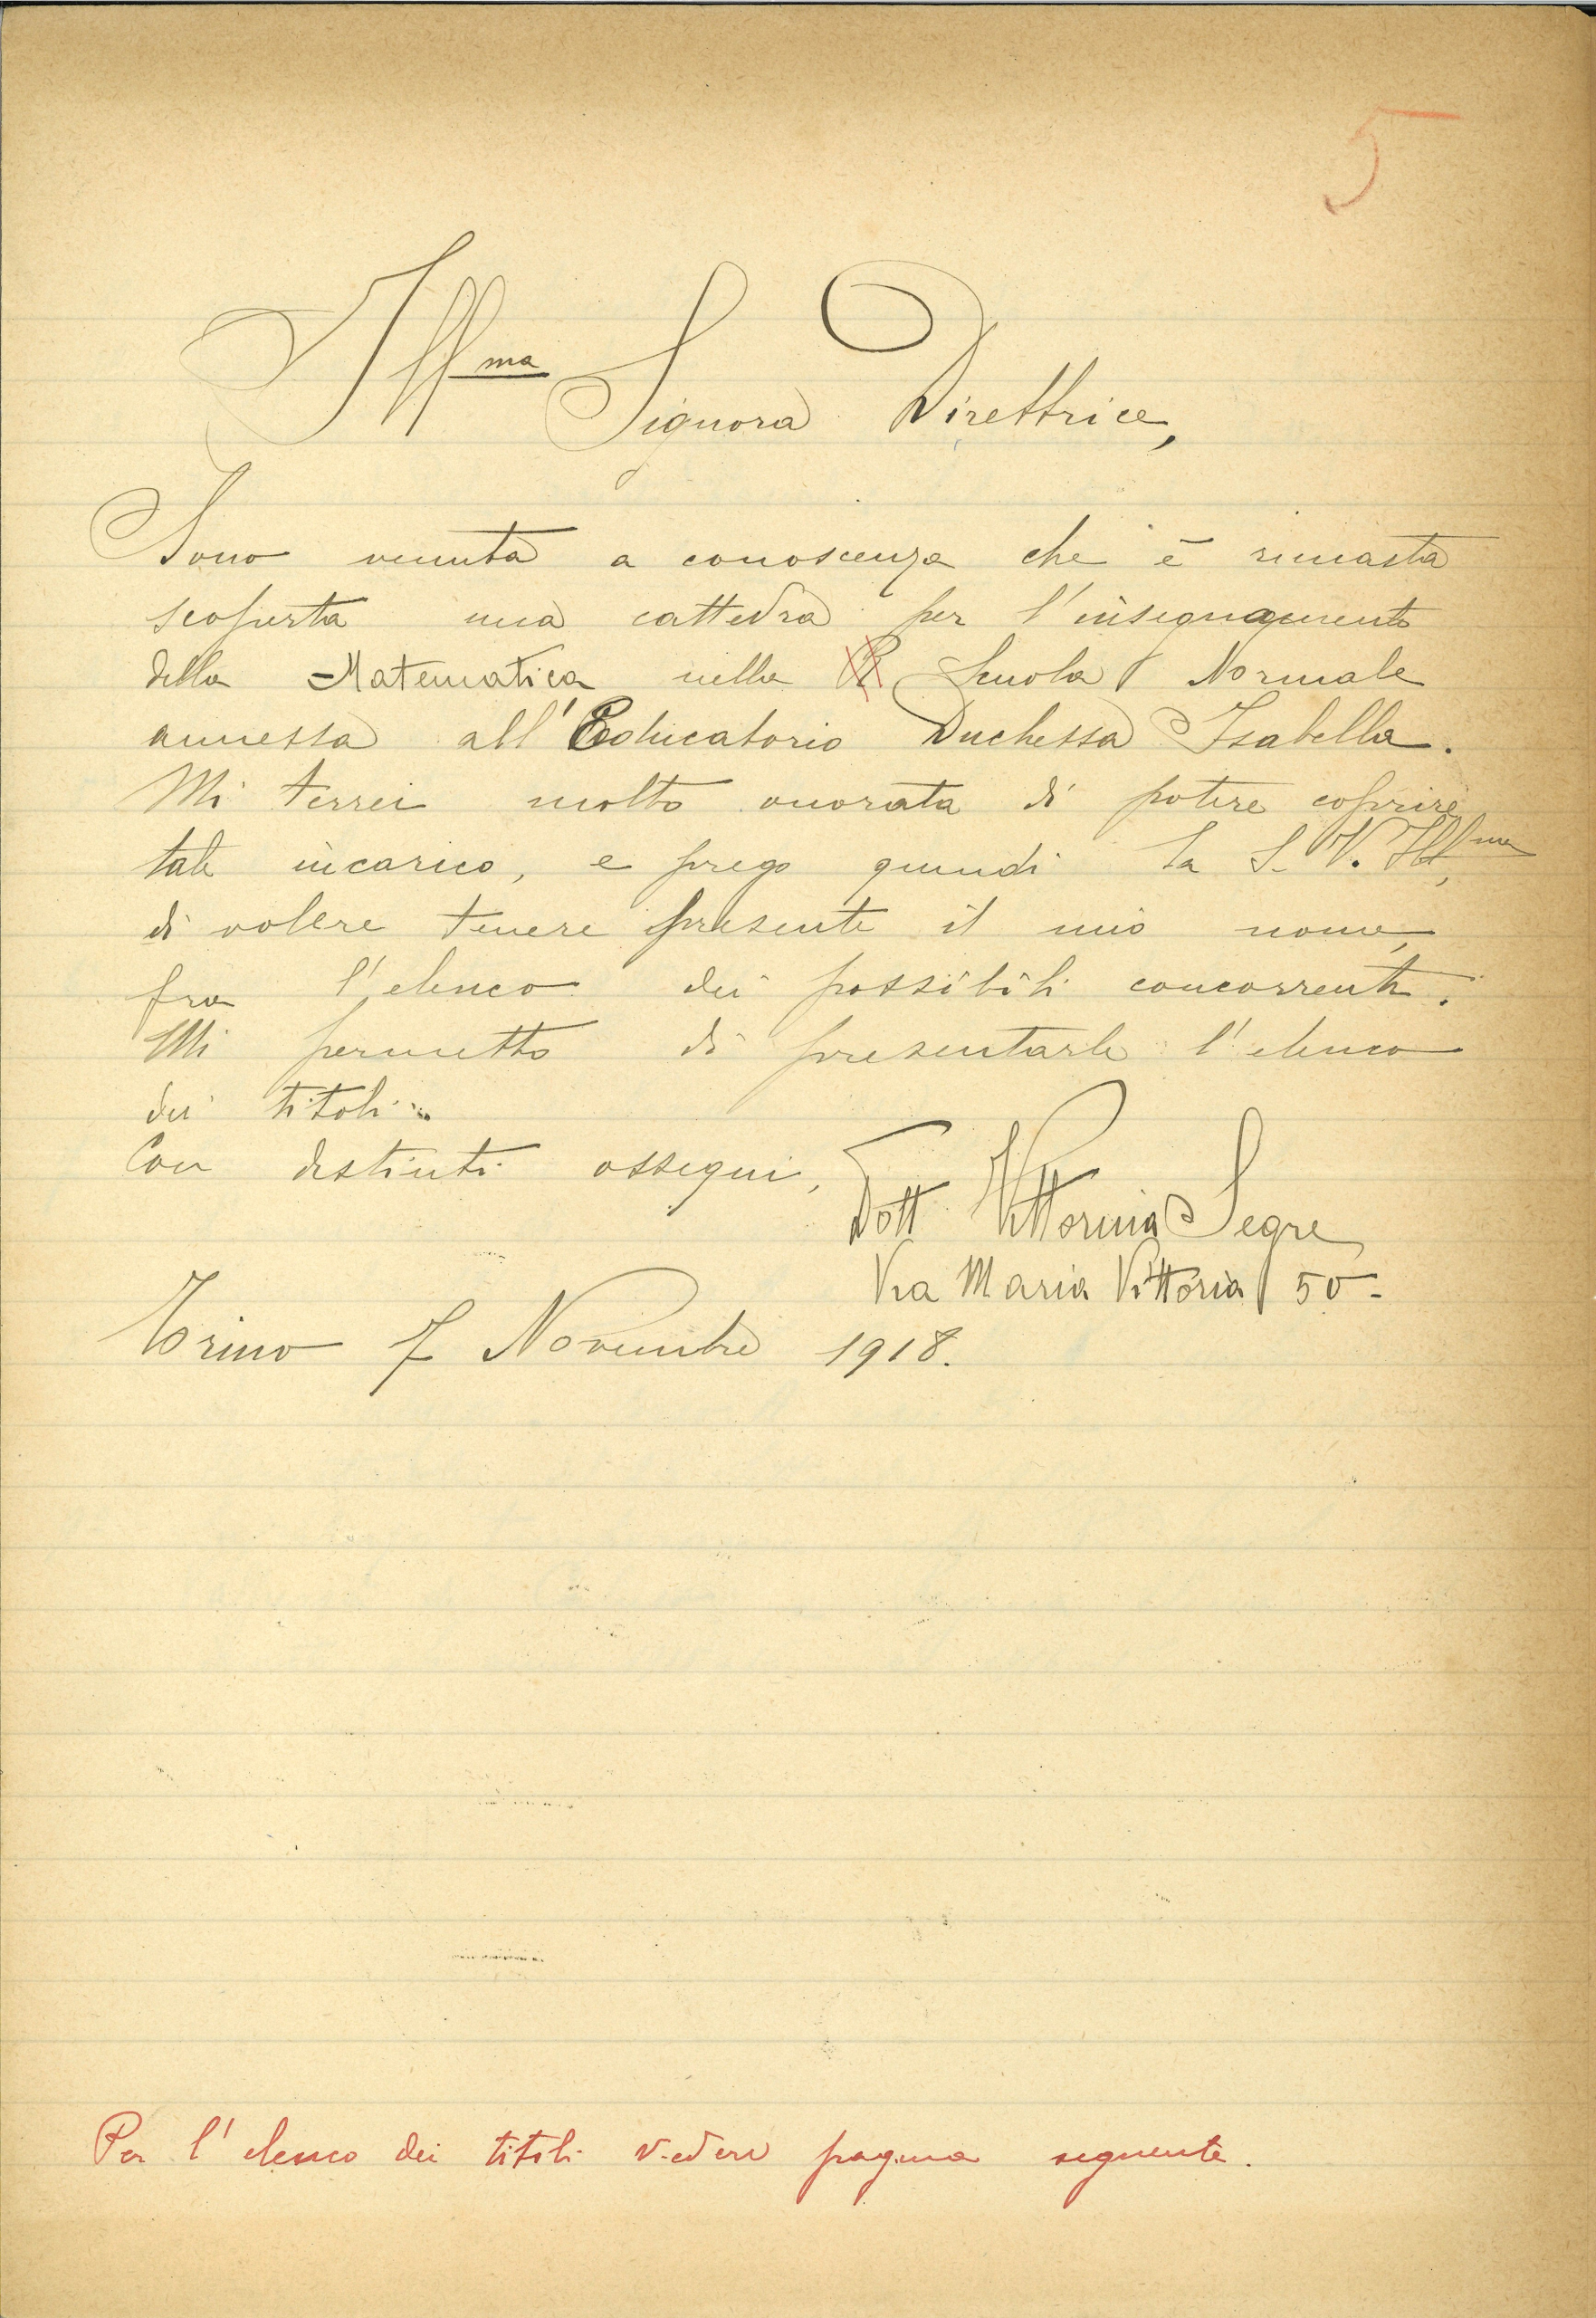 5
Ill.ma Signora Direttrice,
Sono venuta a conoscenza che è rimasta
scoperta una cattedra per l'insegnamento
della Matematica nella R Scuola Normale
annessa all'Educatorio Duchessa Isabella.
Mi terrei molto onorata di potere coprire
tale incarico, e prego quindi la S. V. Ill,ma
di volere tenere presente il mio nome,
fra l'elenco dei possibili concorrenti.
Mi permetto di presentarle l'elenco
dei titoli.
Con distinti ossequi,
Dott Vittorina Segre
Via Maria Vittoria 50-
Torino 7 Novembre 1918.
Per l'elenco dei titoli vedere pagina seguente.